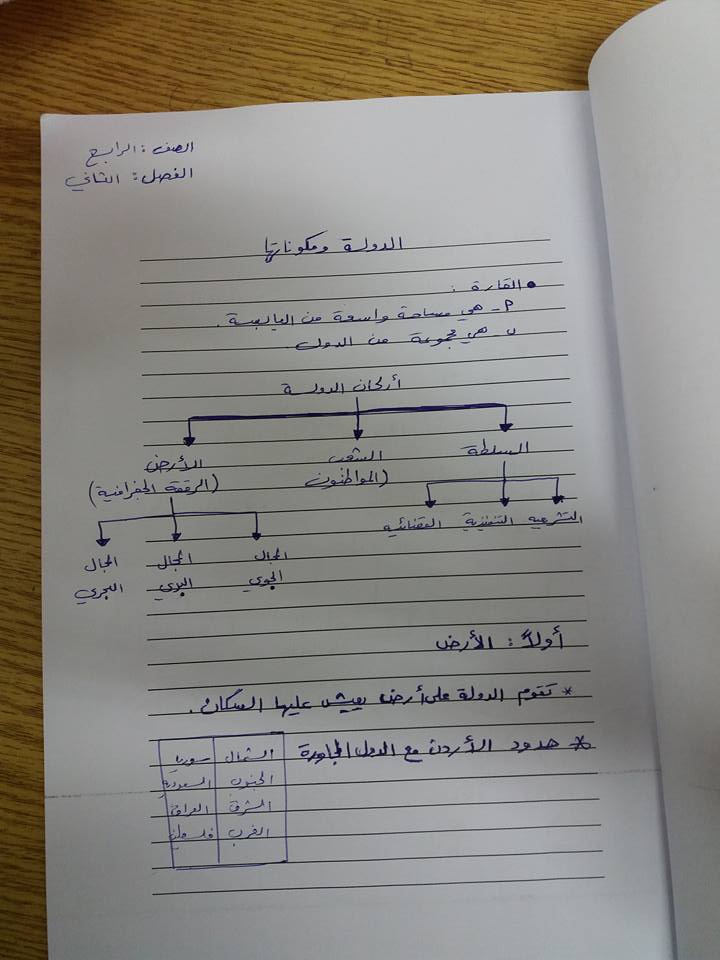 الصف : الرابع
الفصل : الثاني
الدولة ومكوناتها
• القارة :
أ - هي مساحة واسعة من اليابسة .
ب - هي مجموعة من الدول
أركان الدولة
السلطة الشعب الأرض
(المواطنون (الرقعة الجغرافية)
التشرعيه التنفيذية القضائيه
المجال المجال المجال
الجوي البري البحري
أولاً : الأرض
* تقوم الدولة على أرض يعيش عليها السكان .
* حدود الأردن مع الدول المجاورة
الشمال سوريا
الجنوب السعودية
الشرق العراق
الغرب فلسطين